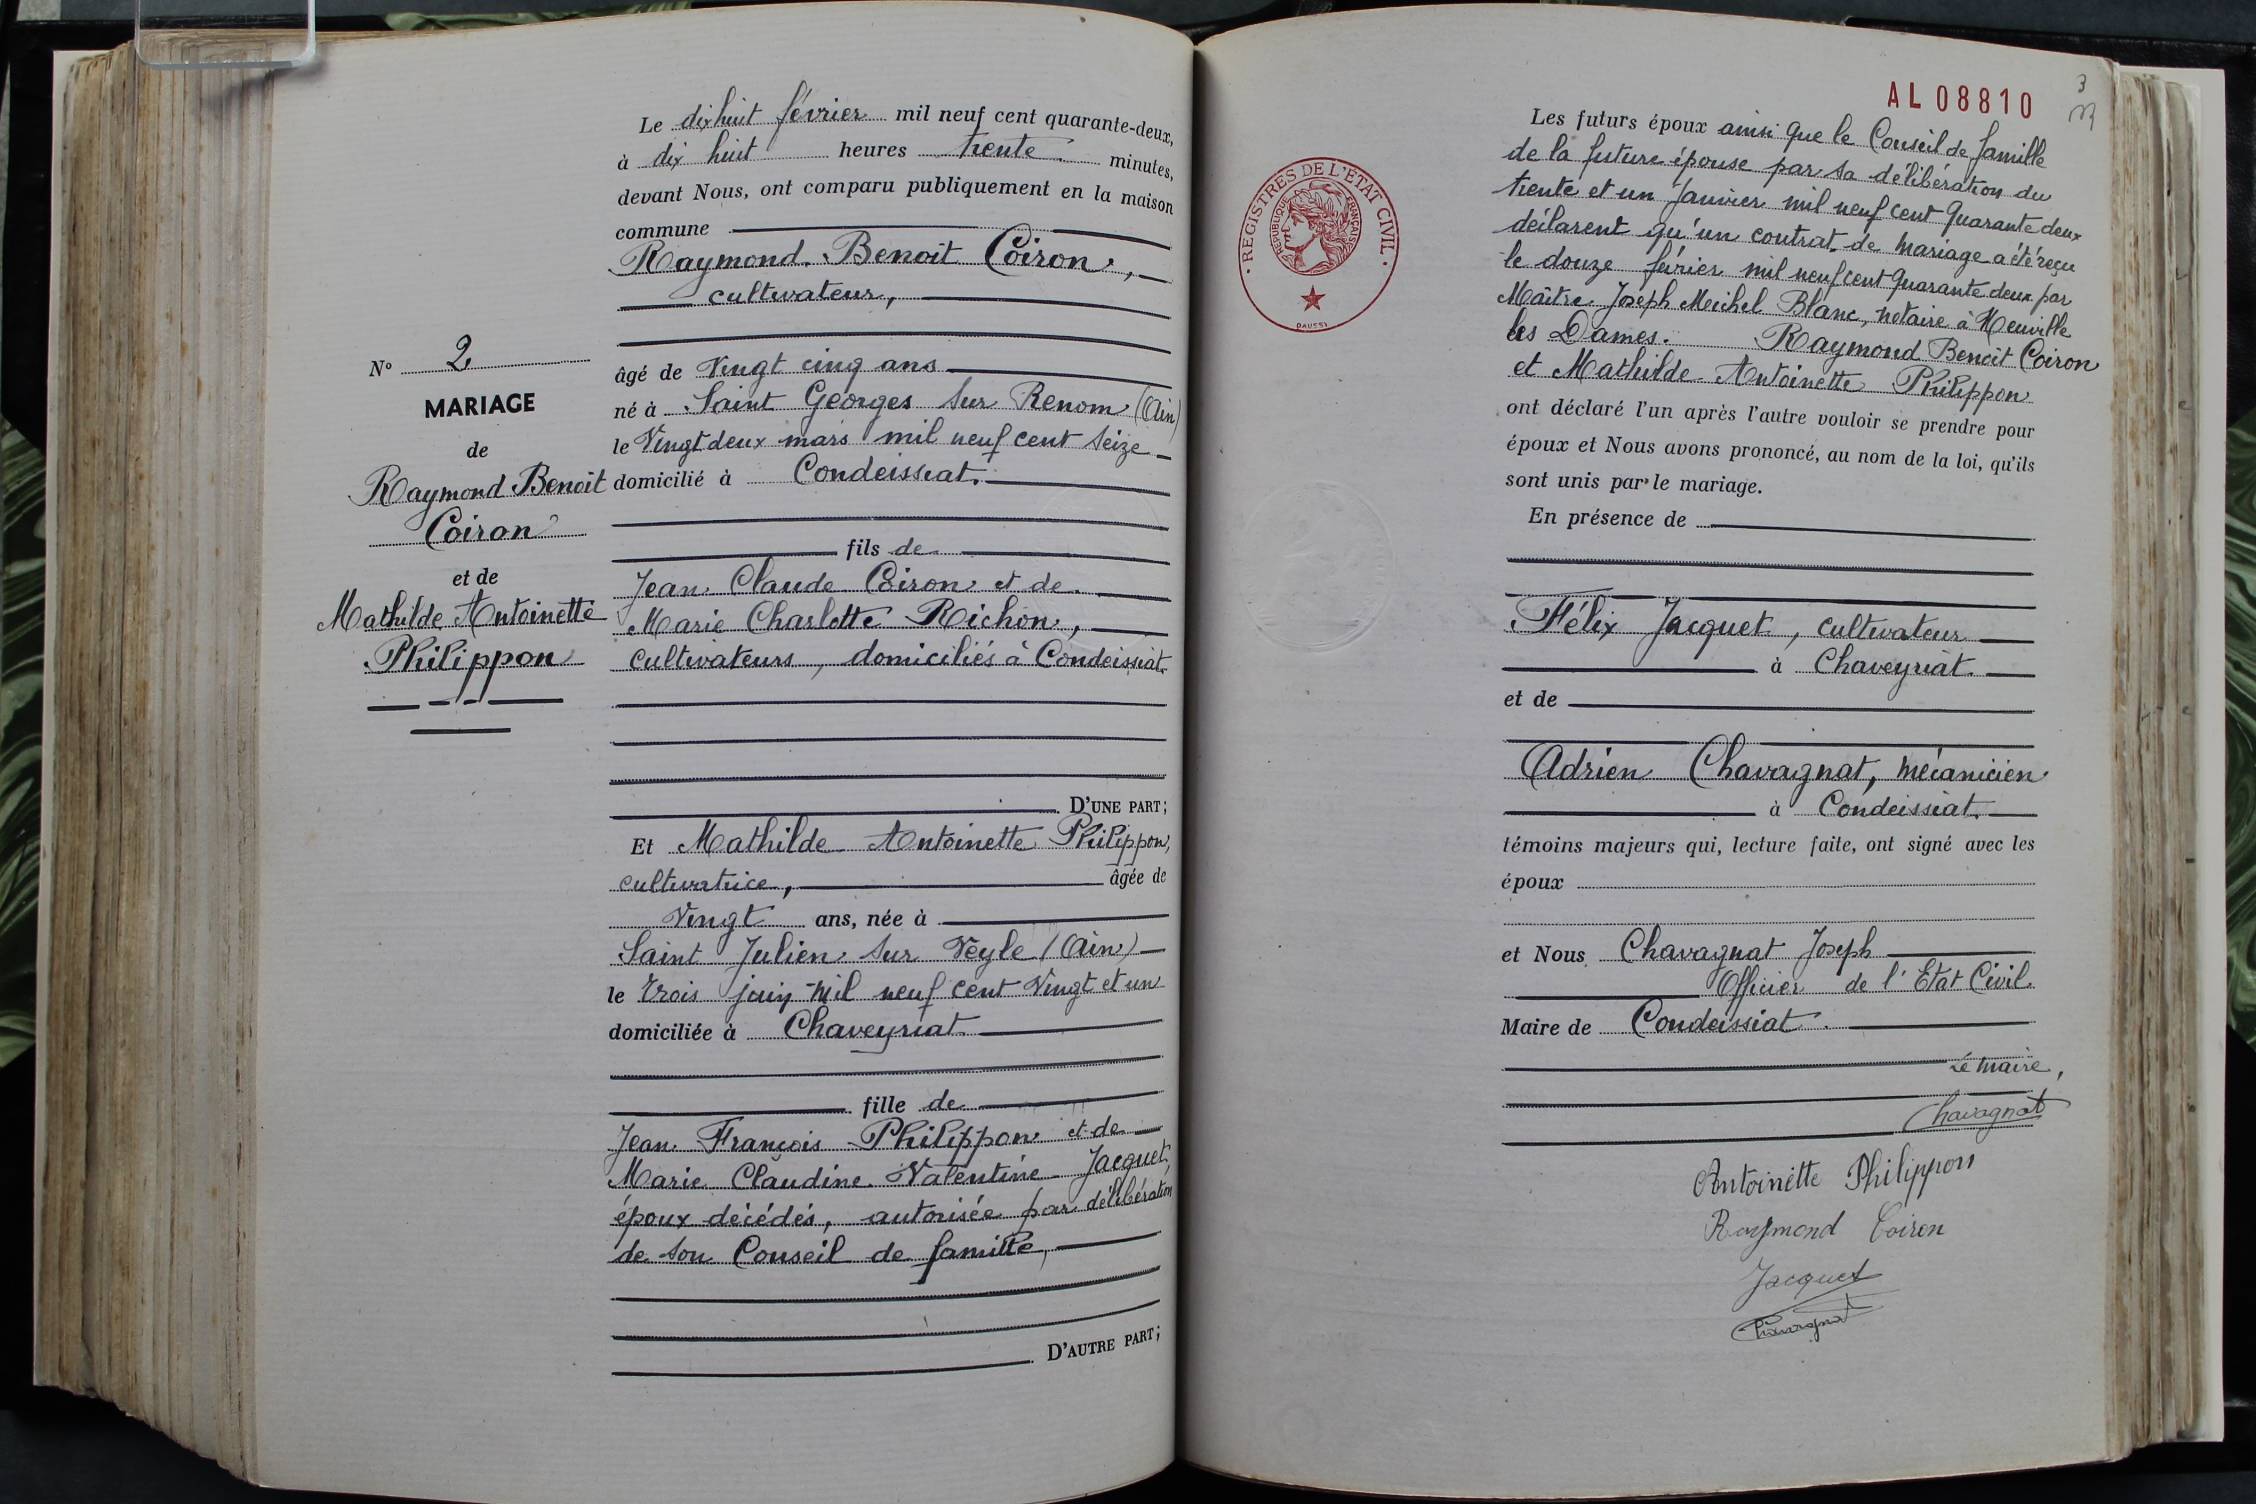 Le dix huit février mil neuf cent quarante-deux,
à dix huit heures trente minutes,
devant Nous, ont comparu publiquement en la maison
commune
Raymond Benoit Coiron,
cultivateur,
âgé de Vingt cinq ans
né à Saint Georges sur Renom (Ain)
le Vingt deux mars mil neuf cent seize
domicilié à Condeissiat.
fils de
Jean Claude Coiron et de
Marie Charlotte Richon,
cultivateurs, domiciliés à Condeissiat.
D'UNE PART;
Et Mathilde Antoinette Philippon,
cultivatrice, âgée de
Vingt ans, née à
Saint Julien sur Veyle (Ain)
le trois juin mil neuf cent Vingt et un
domiciliée à Chaveyriat
fille de
Jean François Philippon et de
Marie Claudine Valentine Jacquet,
époux décédés, autorisée par délibération
de son Conseil de famille,
D'AUTRE PART;
No 2
MARIAGE
de
Raymond Benoit
Coiron
et de
Mathilde Antoinette
Philippon
AL 08810
3
REGISTRES DE L'ÉTAT CIVIL
RÉPUBLIQUE FRANÇAISE
DAUSSI
Les futurs époux ainsi que le Conseil de famille
de la future épouse par sa délibération du
trente et un Janvier mil neuf cent quarante deux
déclarent qu'un contrat de mariage a été reçu
le douze février mil neuf cent quarante deux par
Maître Joseph Michel Blanc, notaire à Neuville
les Dames. Raymond Benoit Coiron
et Mathilde Antoinette Philippon
ont déclaré l'un après l'autre vouloir se prendre pour
époux et Nous avons prononcé, au nom de la loi, qu'ils
sont unis par le mariage.
En présence de
Félix Jacquet, cultivateur
à Chaveyriat.
et de
Adrien Chavagnat, mécanicien
à Condeissiat.
témoins majeurs qui, lecture faite, ont signé avec les
époux
et Nous Chavagnat Joseph
Officier de l'Etat Civil
Maire de Condeissiat.
Le maire,
Chavagnat
Antoinette Philippon
Raymond Coiron
Jacquet
Chavagnat